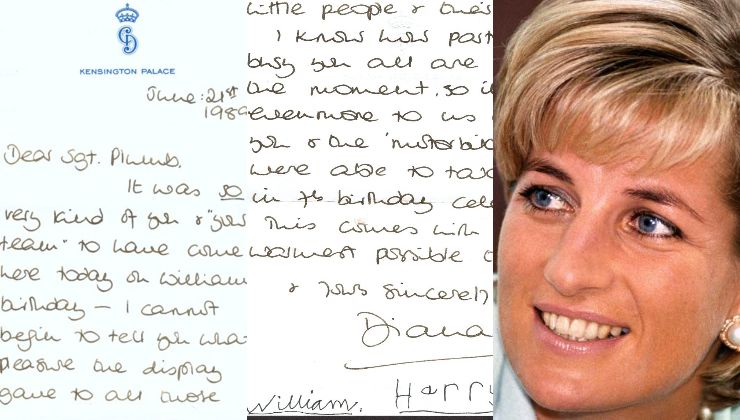 KENSINGTON PALACE
June: 21st
1989
Dear Sgt. Plumb,
It was so
very kind of you & "your
team" to have come
here today on William
birthday — I cannot
begin to tell you wha
pleasure the display
gave to all those
little people &
I know how part
busy you all are
the moment, so i
even more to us
you & the 'motorbik
were able to ta
in the birthday cel
This comes with
warmest possible
& Yours sincerely
Diana
William. Harry